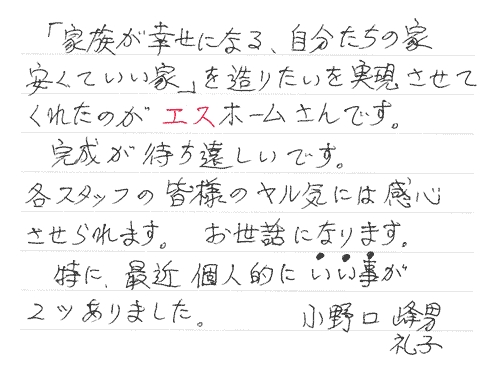 「家族が幸せになる、自分たちの家
安くていい家」を造りたいを実現させて
くれたのがエスホームさんです。
完成が待ち遠しいです。
各スタッフの皆様のヤル気には感心
させられます。 お世話になります。
特に、最近個人的にいい事が
2ツありました。 小野口 峰男
礼子